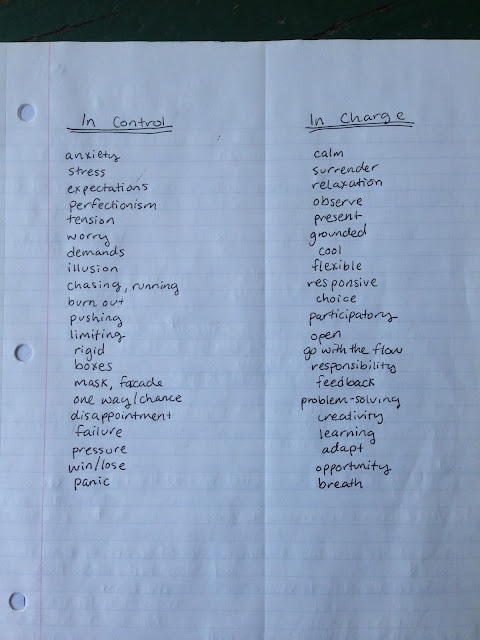 In Control
anxiety
stress
expectations
perfectionism
tension
worry
demands
illusion
chasing, running
burn out
pushing
limiting
rigid
boxes
mask, facade
one way/chance
disappointment
failure
pressure
win/lose
panic
In Charge
calm
surrender
relaxation
observe
present
grounded
cool
flexible
responsive
choice
participatory
open
go with the flow
responsibility
feedback
problem-solving
creativity
learning
adapt
opportunity
breath